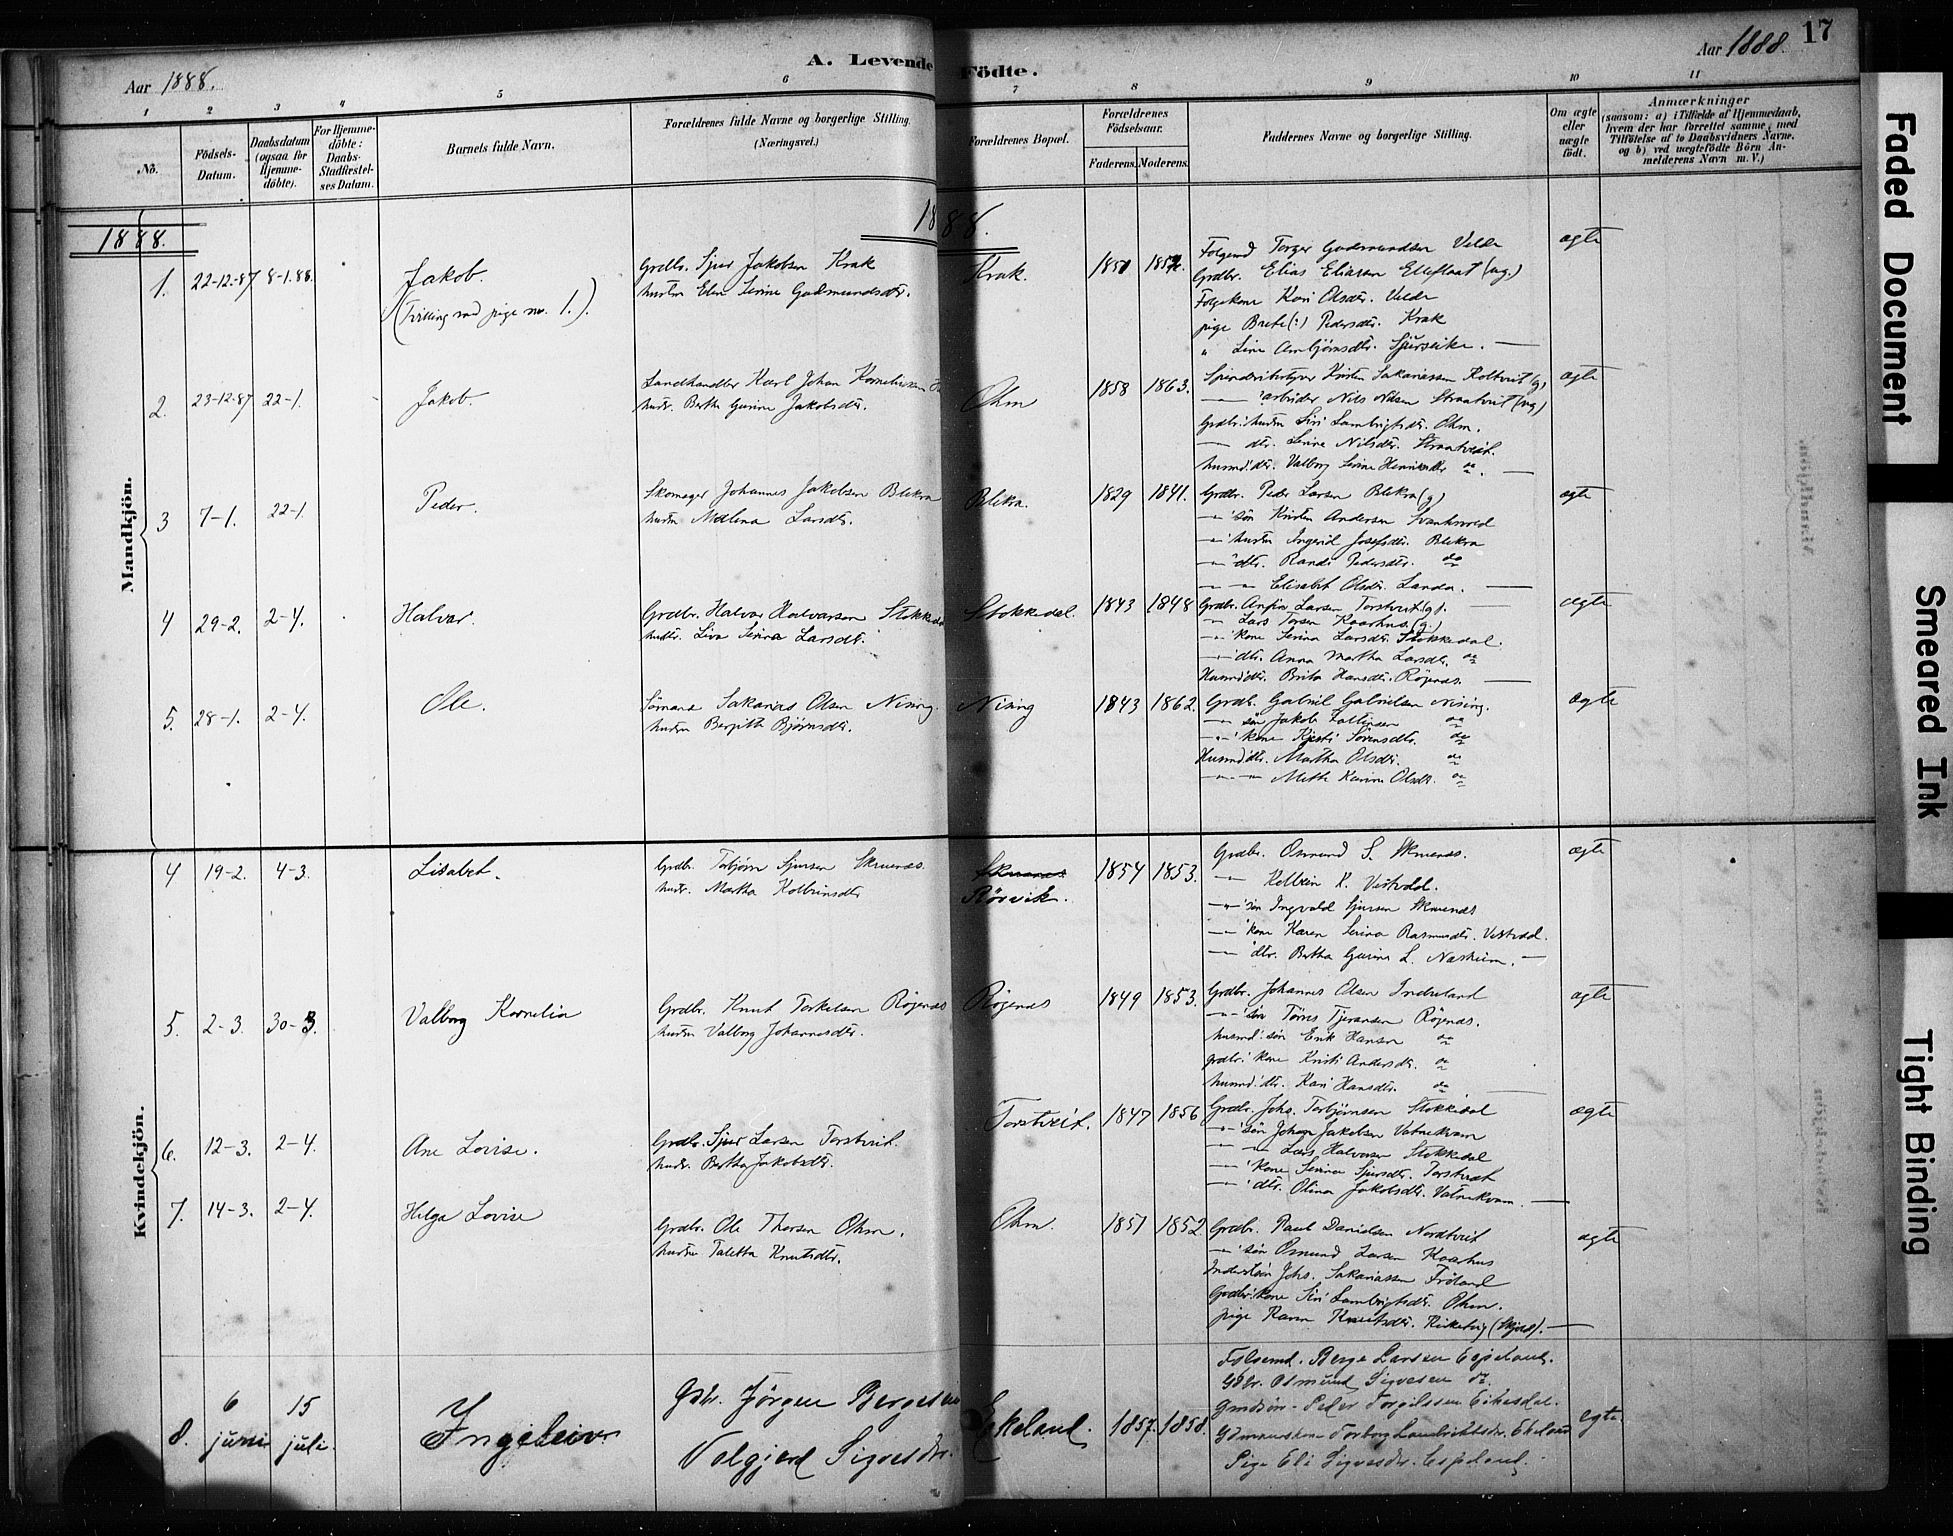 Aar 1888.
A. Levende Födte.
Aar 1888. 17
1 2 3 4 5 6 7 8 9 10 11
No.
Födsels-
Datum.
Daabsdatum
(ogsaa for
Hjemme-
döbte).
For Hjemme-
döbte:
Daabs-
Stadfæstel-
ses Datum.
Barnets fulde Navn.
Forældrenes fulde Navne og borgerlige Stilling
(Næringsvei.)
Forældrenes Bopæl.
Forældrenes
Födselsaar.
Faderens. Moderens.
Faddernes Navne og borgerlige Stilling.
Om ægte
eller
uægte
födt.
Anmærkninger
(saasom: a) i Tilfælde af Hjemmedaab,
hvem der har forrettet samme, med
Tilföielse af to Daabsvidners Navne,
og b) ved uægtefödte Börn An-
melderens Navn m. V.)
1888.
1888.
Mandkjön.
1. 22-12-87 8-1.88.
Jakob.
(Tvilling med pige no. 1.).
Grdbr. Sjur Jakobsen Krak
hustru Elen Serine Gudmundsdtr.
Krak. 1851 1857.
Folgemd Torger Gudmundsen Velde
Grdbr. Elias Eliassen
Folgekone Kari Olsdtr. Velde
pige Brete (:) Pedersdtr. Krak
" Line
ægte
2. 23-12-87 22-1.
Jakob.
Landhandler Karl Johan Korneliussen
hustr. Bertha Gurine Jakobsdtr.
Ohm 1858 1863.
Kristen Sakariassen
arbeider Nils Nilsen Straatveit (ug)
Grdbr. hustru Siri Lambrigtsdtr. Ohm.
dtr. Serine Nilsdtr. Straatveit.
husmd. dtr. Valborg Serine Henriksdtr do.
ægte
3 7-1. 22-1
Peder.
Skomager Johannes Jakobsen Blikra
hustru Malena Larsdtr.
Blikra. 1829 1841.
Grdbr. Peder Larsen Blikra (g)
søn Kristen Andersen
hustru Ingerid Josefsdtr. Blikra
dtr. Randi Pedersdtr. do
Elisabet Olsdtr. Landa.
ægte
4 29-2. 2-4.
Halvar.
Grdbr. Halvar Halvarsen Stokkedal
hustr. Liva Serina Larsdtr.
Stokkedal. 1843 1848
Grdbr. Anfin Larsen Torstveit (g).
Lars Torsen Kaarhus (g.)
kone Serina Larsdtr. Stokkedal.
dtr. Anna Martha Larsdtr. do
Husmd. dtr. Brita Hansdtr. Røgenes.
ægte
5. 28-1. 2-4.
Ole.
Sømand Sakarias Olsen Nising.
hustru Bergitte Bjørnsdtr.
Nising 1843 1862.
Grdb. Gabriel Gabrielsen Nising.
søn Jakob
kone Kjersti Sørensdtr. do
Husmd. dtr. Martha Olsdtr. do
Mette Karine Olsdtr. do
ægte
Kvindekjön.
4 19-2. 4-3.
Lisabet.
Grdbr. Torbjørn Sjursen Skruenes.
hustr. Martha Kolbeinsdtr
Skruenes
Rörvik. 1854 1853.
Grdbr. Osmund S. Skruenes.
Kolbein K.
søn Ingvald Sjursen Skruenes
kone Karen Serina Rasmusdtr.
dtr. Bertha Gurine L.
ægte
5. 2-3. 30-3.
Valborg Kornelia
Grdbr. Knut Torkelsen Røgenes
hustru Valborg Johannesdtr.
Røgenes 1849 1853.
Grdbr. Johannes Olsen Indreland
søn Tørres Tjeransen Røgenes.
husmd. søn Erik Hansen do
grdbr. kone Kristi Andersdtr. do
husmd. dtr. Kari Hansdtr. do
ægte
6. 12-3. 2-4.
Ane Lovise.
Grdbr. Sjur Larsen Torstveit.
hustr. Bertha Jakobsdtr.
Torstveit. 1847 1856
Grdbr. Johs. Torbjørnsen Stokkedal
søn Johan Jakobsen Vatnekvam
Lars Halvorsen Stokkedal
kone Serina Sjursdtr. Torstveit
dtr. Olina Jakobsdtr. Vatnekvam.
ægte
7. 14-3. 2-4.
Helga Lovise
Grdbr. Ole Thorsen Ohm.
hustru Taletta Knutsdtr.
Ohm. 1851 1852
Grdbr. Paul Danielsen Nordtveit
søn Osmund Larsen Kaarhus
Johs. Sakariassen Fröland
Grdbr. kone Siri Lambrigtsdtr. Ohm.
pige Karen Knutsdtr. (Skjold).
ægte
8. 6 juni 15 juli
Ingeleiv
Gbr. Jørgen Bergesen
Valgjerd Sigvesdtr.
Ekeland. 1857. 1858.
Folgemd. Berge Larsen Espeland.
Gbr. Osmund Sigvesen do.
Peder Torgilssen Eikesdal.
Torborg Lambrektsdtr. Ekeland
Pige Eli Sigvesdtr. Espeland.
egte
Faded Document
Smeared Ink
Tight Binding